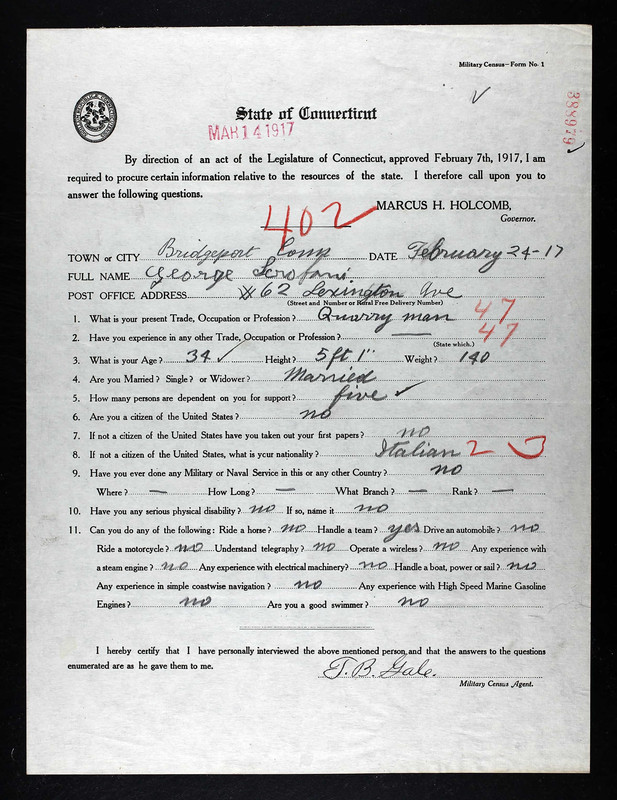 Military Census—Form No. 1
388979
State of Connecticut
MAR 14 1917
By direction of an act of the Legislature of Connecticut, approved February 7th, 1917, I am
required to procure certain information relative to the resources of the state. I therefore call upon you to
answer the following questions.
MARCUS H. HOLCOMB,
Governor.
402
TOWN or CITY Bridgeport Conn DATE February 24-17
FULL NAME George Scrofani
POST OFFICE ADDRESS 62 Lexington Ave
(Street and Number or Rural Free Delivery Number)
1. What is your present Trade, Occupation or Profession? Quarry man 47
2. Have you experience in any other Trade, Occupation or Profession? — 47
(State which.)
3. What is your Age? 34 ✓ Height? 5 ft. 1" Weight? 140
4. Are you Married? Single? or Widower? Married
5. How many persons are dependent on you for support? five ✓
6. Are you a citizen of the United States? no
7. If not a citizen of the United States have you taken out your first papers? no
8. If not a citizen of the United States, what is your nationality? Italian 2
9. Have you ever done any Military or Naval Service in this or any other Country? no
Where? — How Long? — What Branch? — Rank? —
10. Have you any serious physical disability? no If so, name it no
11. Can you do any of the following: Ride a horse? no Handle a team? yes Drive an automobile? no
Ride a motorcycle? no Understand telegraphy? no Operate a wireless? no Any experience with
a steam engine? no Any experience with electrical machinery? no Handle a boat, power or sail? no
Any experience in simple coastwise navigation? no Any experience with High Speed Marine Gasoline
Engines? no Are you a good swimmer? no
I hereby certify that I have personally interviewed the above mentioned person and that the answers to the questions
enumerated are as he gave them to me.
T. B. Gale.
Military Census Agent.